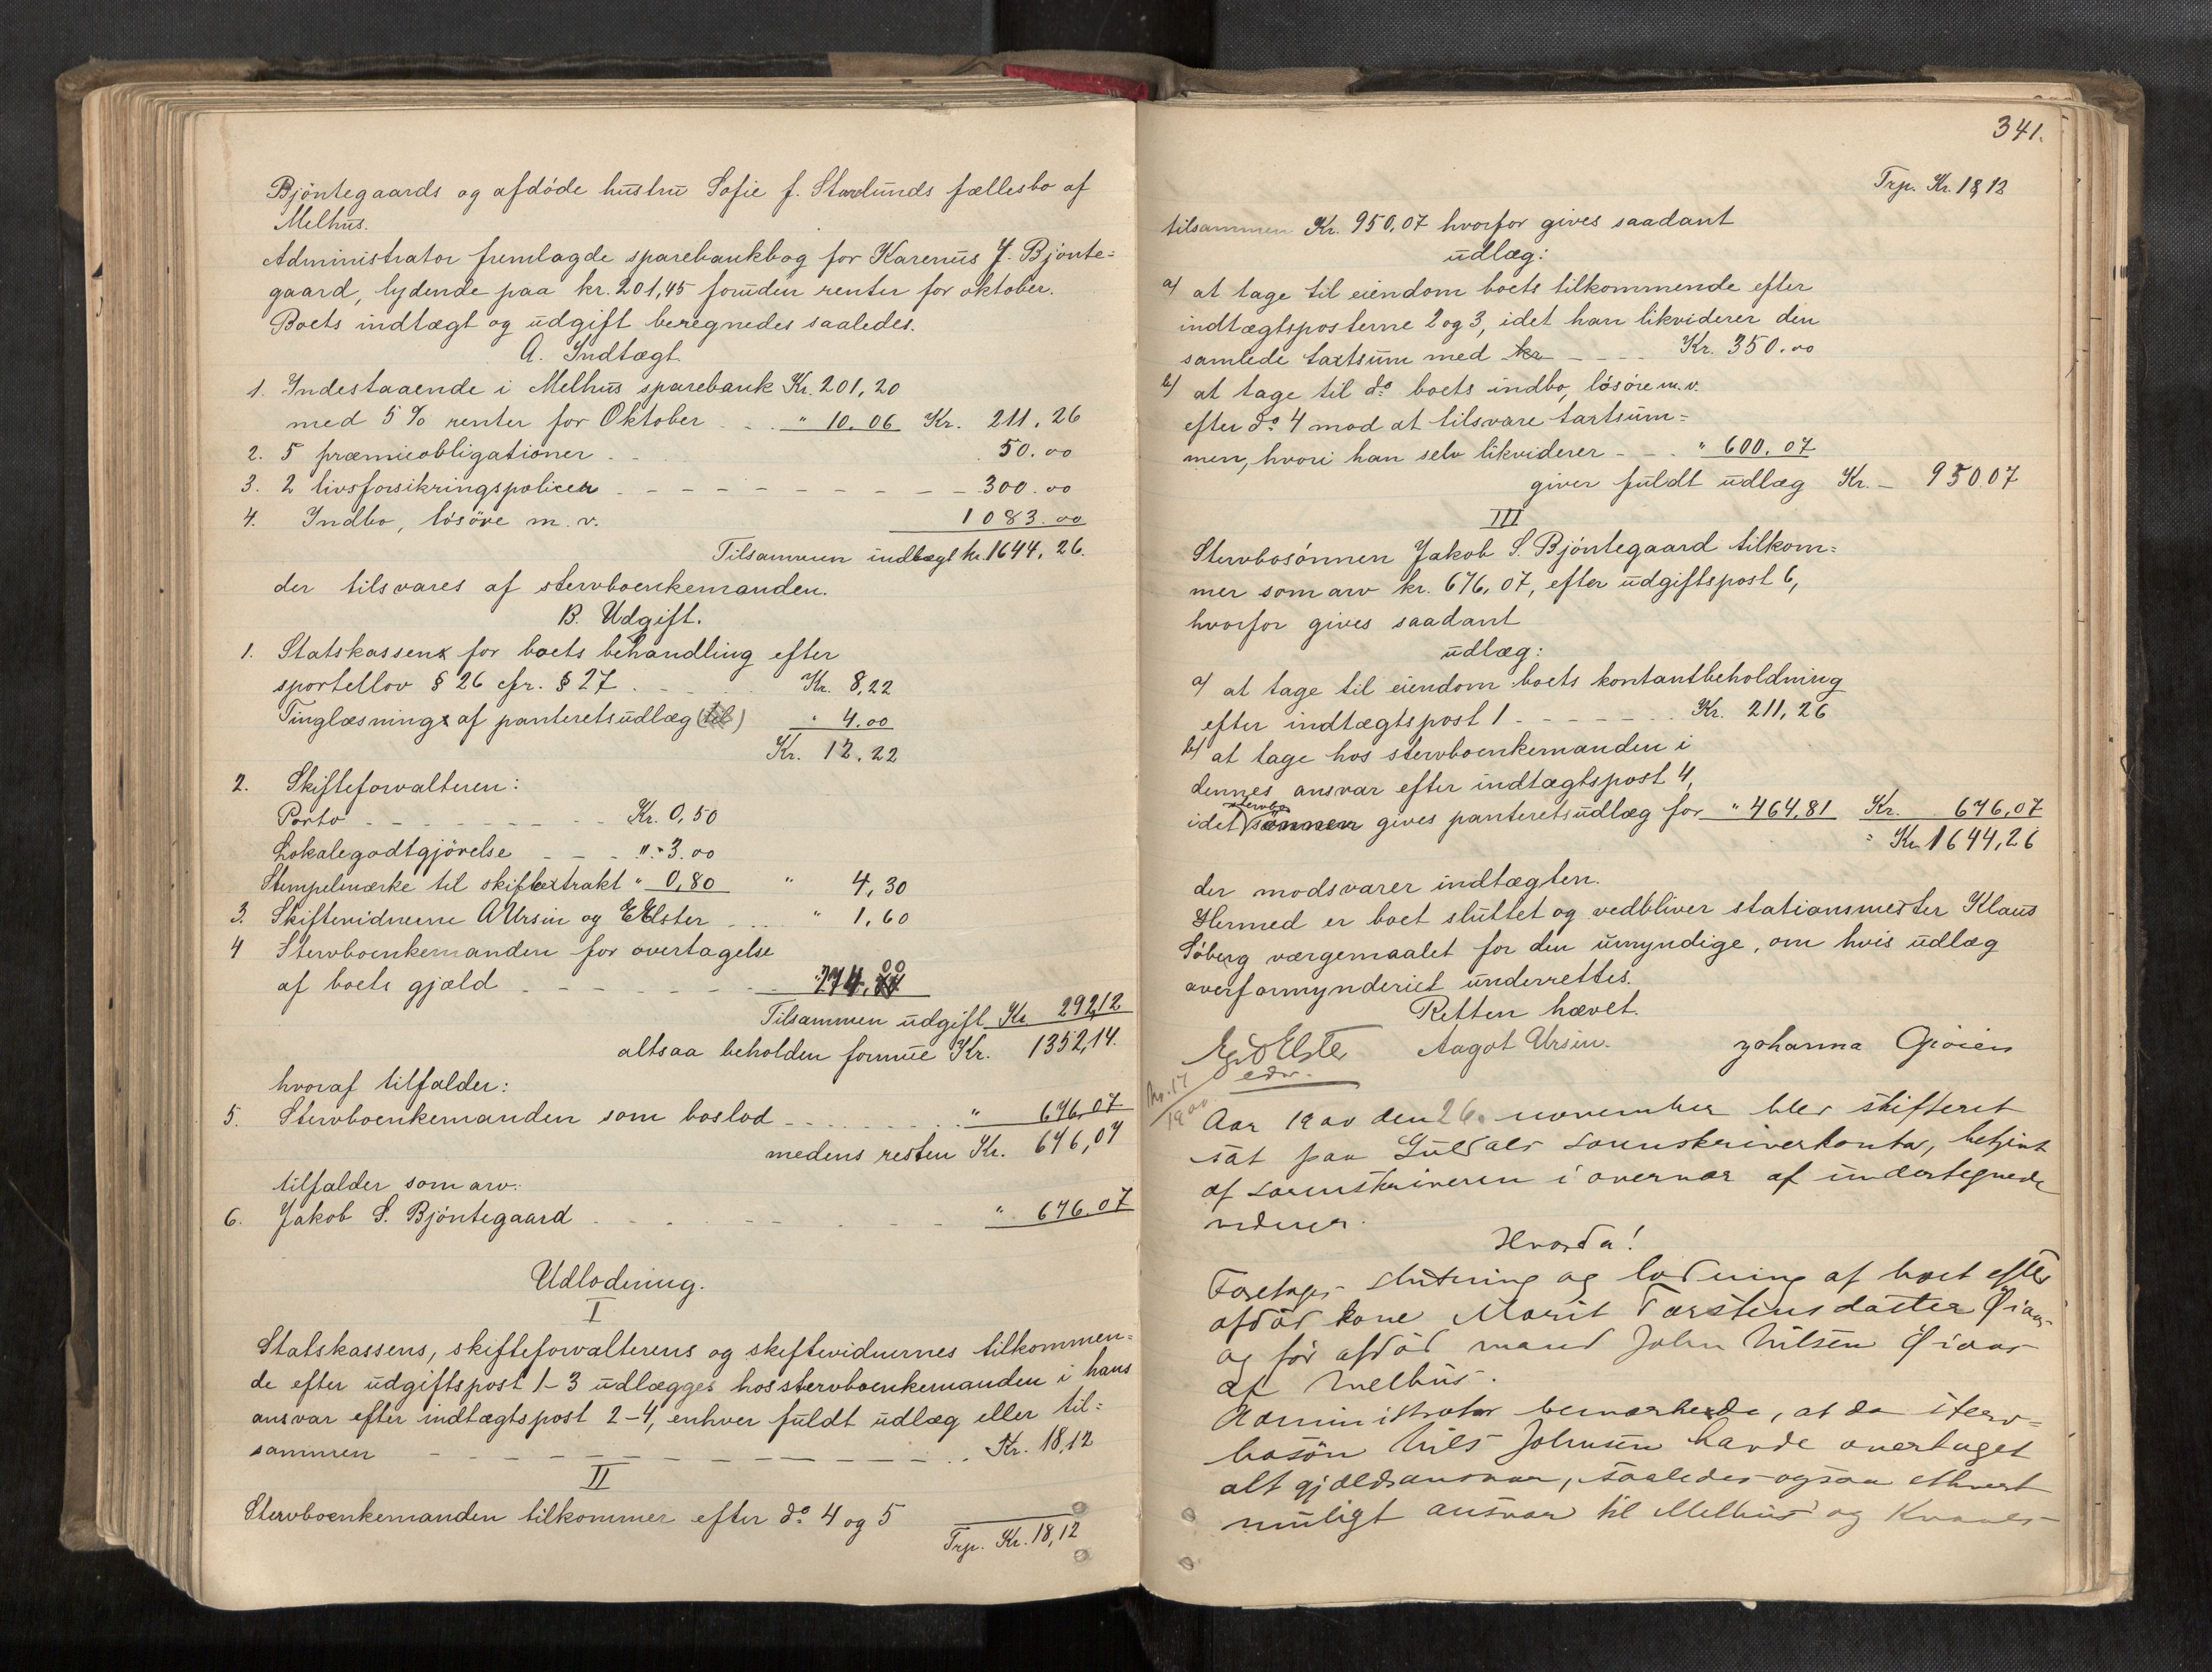 Bjöntegaards og afdöde hustru Sofie f. Stavlunds fællesbo af
Melhus.
Administrator fremlagde sparebankbog for Karenus J. Bjönte=
gaard, lydende paa kr. 201,45 foruden renter for oktober.
Boets indtægt og udgift beregnedes saaledes.
A. Indtægt.
1. Indestaaende i Melhus sparebank Kr. 201,20
med 5 % renter for Oktober " 10.06 Kr. 211,26
2. 5 præmieobligationer 50.00
3. 2 livsforsikringspolicer 300.00
4. Indbo, lösöre m. v. 1083.00
Tilsammen indtægt kr. 1644,26.
der tilsvares af stervboenkemanden.
B. Udgift.
1. Statskassen for boets behandling efter
sportellov § 26 cfr. § 27 Kr. 8,22
Tinglæsning af panteretsudlæg " 4.00
Kr. 12.22
2. Skifteforvalteren:
Porto Kr. 0,50
Lokalegodtgjörelse " 3.00
Stempelmærke til skifteextrakt " 0,80 " 4,30
3. Skiftevidnerne A Ursin og E Elster " 1,60
4 Stervboenkemanden for overtagelse
af boets gjæld 274,00
Tilsammen udgift Kr. 292,12
altsaa beholden formue Kr. 1352,14.
hvoraf tilfalder:
5. Stervboenkemanden som boslod " 676,07
medens resten Kr. 676,07
tilfalder som arv:
6. Jakob S. Bjöntegaard " 676.07
Udlodning.
I
Statskassens, skifteforvalterens og skiftevidnernes tilkommen=
de efter udgiftspost 1-3 udlægges hos stervboenkemanden i hans
ansvar efter indtægtspost 2-4, enhver fuldt udlæg eller til=
sammen Kr. 18,12
II
Stervboenkemanden tilkommer efter do 4 og 5
Trp. Kr. 18,12
341.
Trp. Kr. 18,12
tilsammen Kr. 950,07 hvorfor gives saadant
udlæg:
a) at tage til eiendom boets tilkommende efter
indtægtsposterne 2 og 3, idet han likviderer den
samlede taxtsum med kr Kr. 350.00
b) at tage til do boets indbo, lösöre m. v.
efter do 4 mod at tilsvare taxtsum=
men, hvori han selv likviderer " 600.07
giver fuldt udlæg Kr. 950.07
III
Stervbosönnen Jakob S. Bjöntegaard tilkom=
mer som arv kr. 676,07, efter udgiftspost 6,
hvorfor gives saadant
udlæg:
a) at tage til eiendom boets kontantbeholdning
efter indtægtspost 1 Kr. 211,26
b) at tage hos stervboenkemanden i
dennes ansvar efter indtægtspost 4,
idet stervbosönnen gives panteretsudlæg for " 464,81 Kr. 676,07
Kr. 1644,26
der modsvarer indtægten.
Hermed er boet sluttet og vedbliver stationsmester Klaus
Söberg værgemaalet for den umyndige, om hvis udlæg
overformynderiet underrettes.
Retten hævet.
Elster Aagot Ursin. Johanna Gröien
edv.
No. 17
1900
Aar 1900 den 26. november blev skifteret
sat paa Guldals sorenskriverkontor, betjent
af sorenskriveren i overvær af undertegnede
vidner.
Hvorda!
Foretoges slutning og lodning af boet efter
afdöd kone Marit Torstensdatter Öiaas
og för afdöd mand John Nilsen Öiaas
af Melhus.
Administrator bemærkede, at da sterv=
bosön Nils Johnsen havde overtaget
alt gjældsansvar, saaledes ogsaa ethvert
muligt ansvar til Melhus og Kvaals